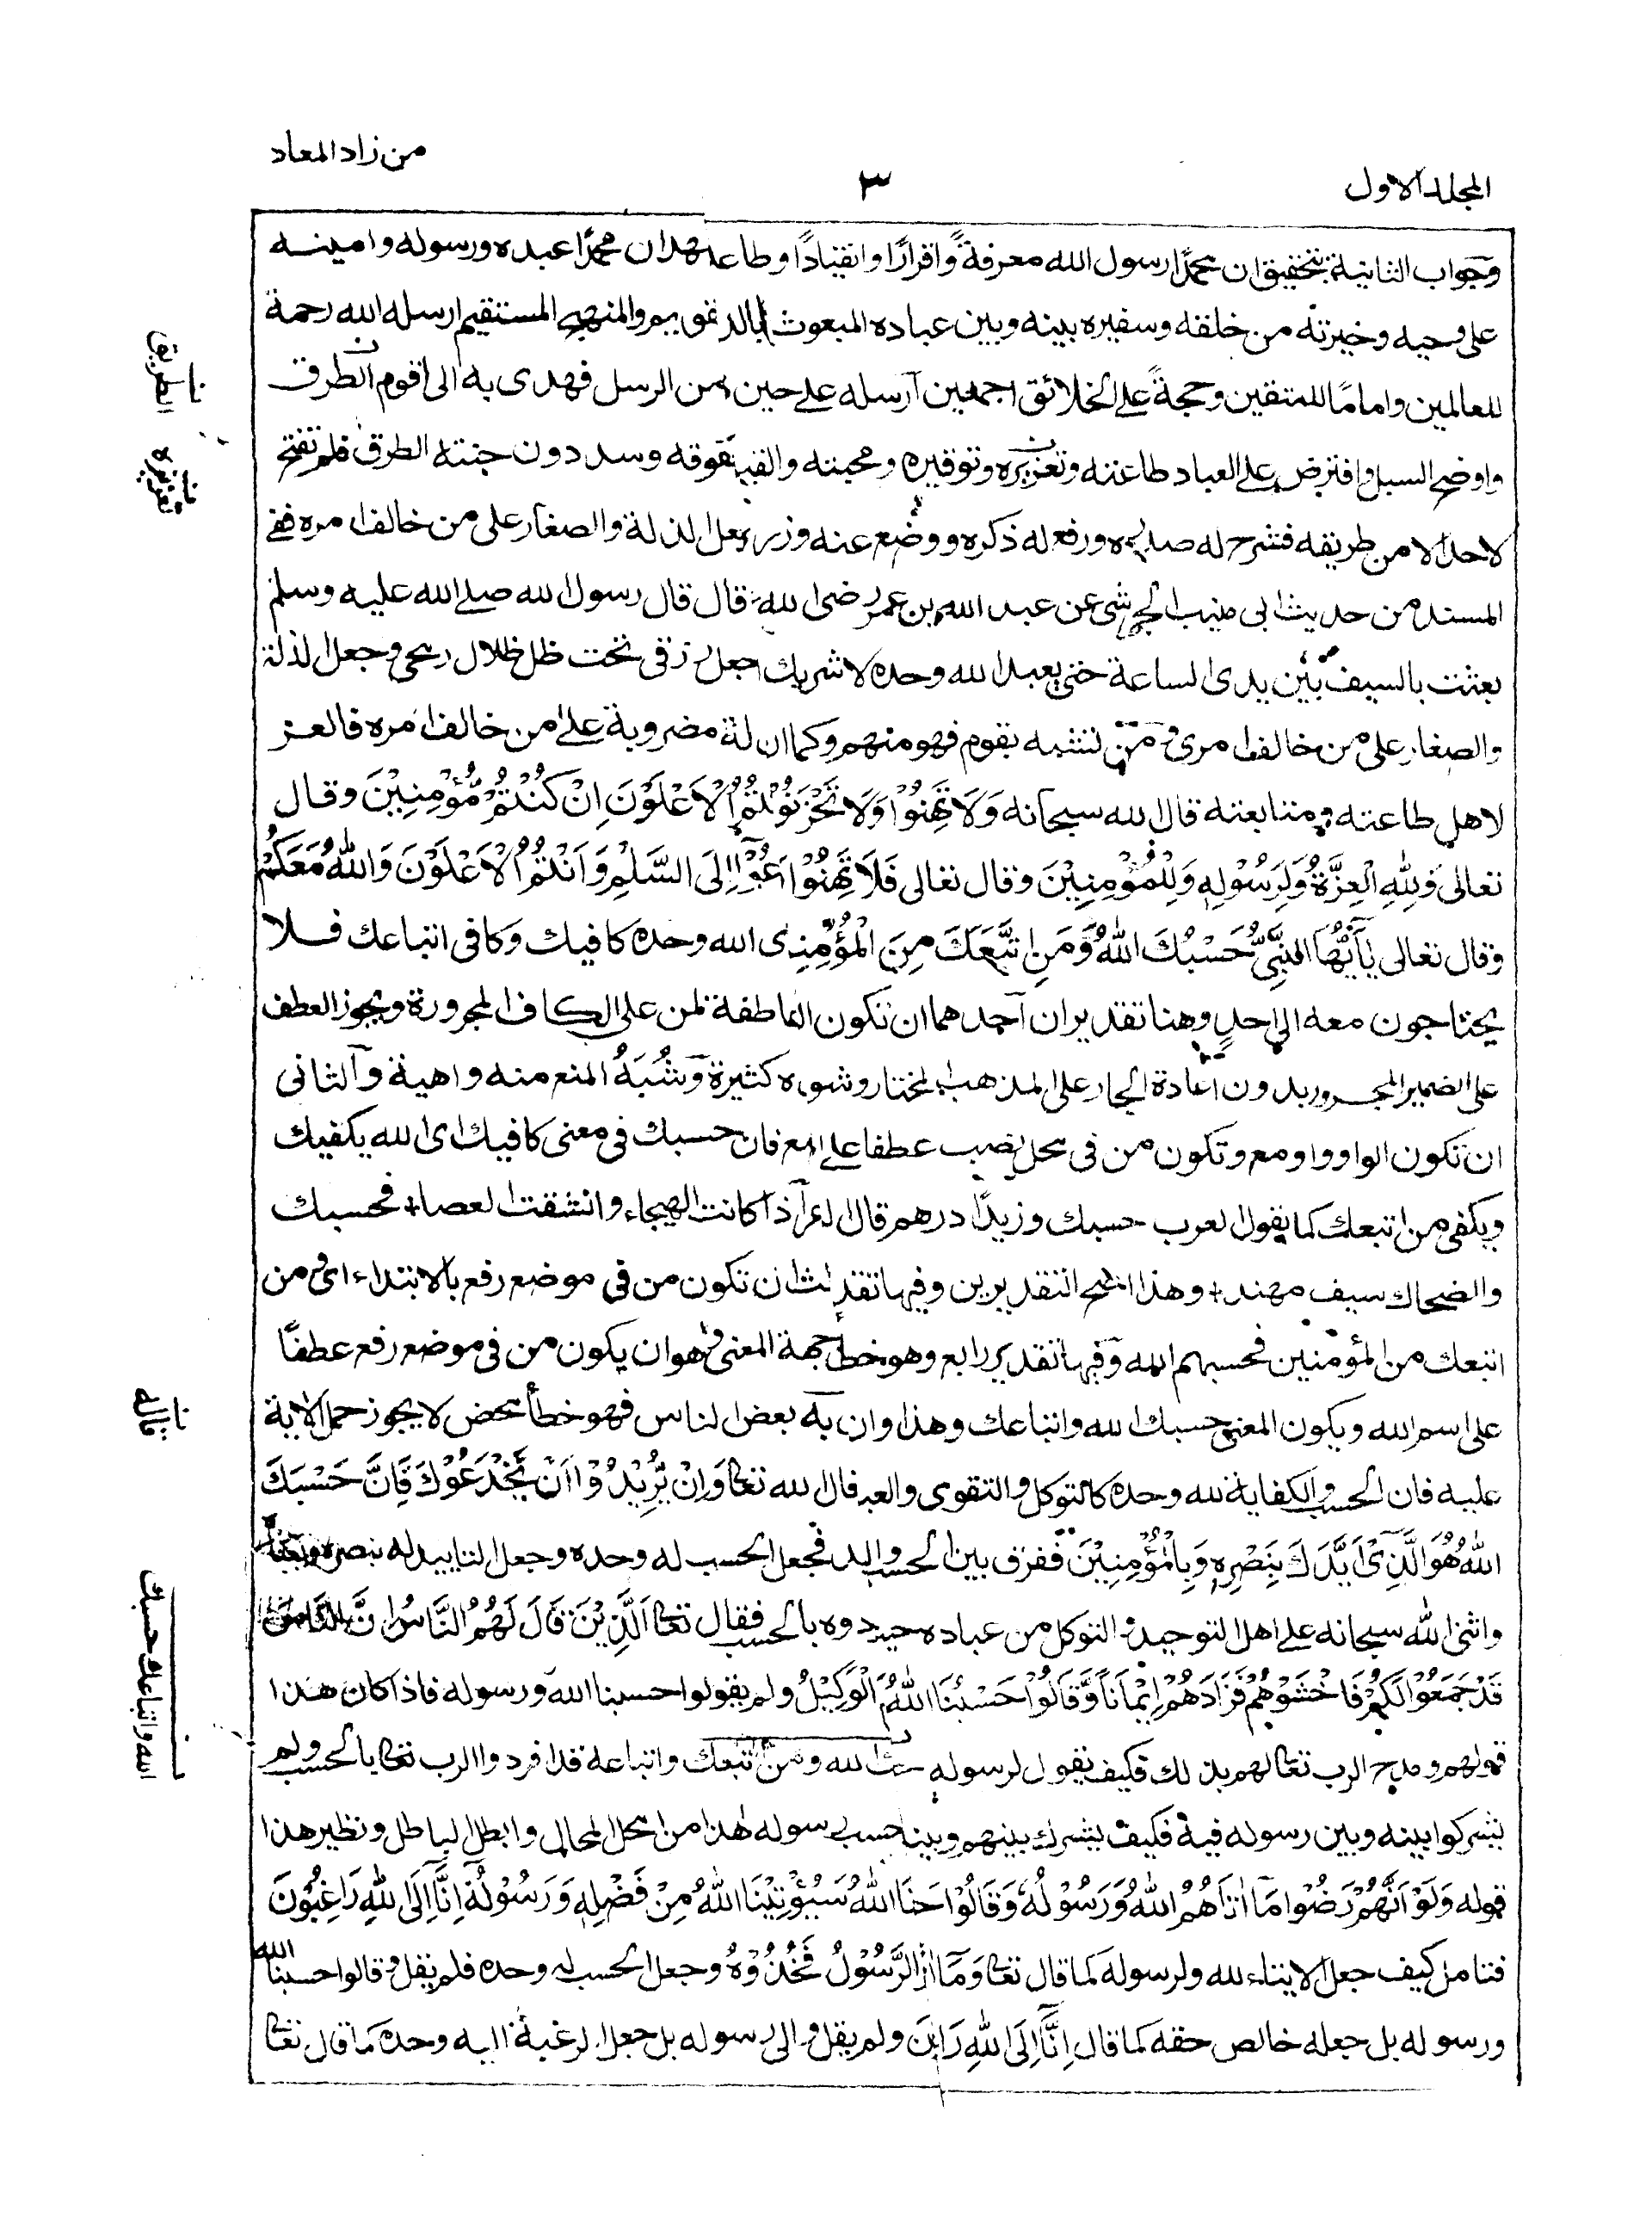 المجلد الاول
٣
من زاد المعاد
وجواب الثانية بتحقيق ان محمدًا رسول الله معرفةً واقرارًا وانقيادًا وطاعة ان محمدًا عبده ورسوله وامينه
على وحيه وخيرته من خلقه وسفيره بينه وبين عباده المبعوث بالد والمنهج المستقيم ارسله الله رحمة
للعالمين وامامًا للمتقين وحجةً على الخلائق اجمعين ارسله على حين من الرسل فهدى به الى اقوم الطرق
واوضح السبل وافترض على العباد طاعته وتعزيره وتوقيره ومحبته بحقوقه وسد دون جنته الطرق فلم تفتح
لاحد الا من طريقه فشرح له صدره ورفع له ذكره ووضع عنه وزره الذلة والصغار على من خالف امره ففي
المسند من حديث ابى منيب الجرشى عن عبد الله بن عمر رضى الله قال قال رسول الله صلى الله عليه وسلم
بعثت بالسيف بين يدى الساعة حتى يعبد الله وحده لا شريك جعل رزقى تحت ظل ظلال رمحى وجعل الذلة
والصغار على من خالف امرى ومن تشبه بقوم فهو منهم وكما ان لة مضروبة على من خالف امره فالعز
لاهل طاعته ومتابعته قال الله سبحانه وَلَا تَهِنُوْا وَلَا تَحْزَنُوْا الْاَعْلَوْنَ اِنْ كُنْتُمْ مُّؤْمِنِيْنَ وقال
تعالى وَلِلّٰهِ الْعِزَّةُ وَلِرَسُوْلِهٖ وَلِلْمُؤْمِنِيْنَ وقال تعالى فَلَا تَهِنُوْا اِلَى السَّلْمِ وَاَنْتُمُ الْاَعْلَوْنَ وَاللّٰهُ مَعَكُمْ
وقال تعالى يٰٓاَيُّهَا النَّبِىُّ حَسْبُكَ اللّٰهُ وَمَنِ اتَّبَعَكَ مِنَ الْمُؤْمِنِ ى الله وحده كافيك وكافى اتباعك فلا
يحتاجون معه الى احدٍ وهنا تقديران احدهما ان تكون العاطفة لمن على الكاف المجرورة ويجوز العطف
على الضمير المجرور بدون اعادة الجار على المذهب المختار وشوا ه كثيرة وشُبَهُ المنع منه واهية والثانى
ان تكون الواو واو مع وتكون من فى محل نصب عطفا على فان حسبك فى معنى كافيك اى الله يكفيك
ويكفى من اتبعك كما يقول العرب حسبك وزيدًا درهم قال اذا كانت الهيجاء وانشقت العصا+ فحسبك
والضحاك سيف مهند+ وهذا اصح التقديرين وفيها تقدير ان تكون من فى موضع رفع بالابتداء اى ومن
اتبعك من المؤمنين فحسبهم الله وفيها تقدير رابع وهو خطأ جهة المعنى وهو ان يكون من فى موضع رفع عطفًا
على اسم الله ويكون المعنى حسبك الله واتباعك وهذا وان به بعض الناس فهو خطأ محض لا يجوز حمل الآية
عليه فان الحسب والكفاية لله وحده كالتوكل والتقوى والعبد قال الله تعا وَاِنْ يُّرِيْدُوْٓا اَنْ يَّخْدَعُوْكَ فَاِنَّ حَسْبَكَ
اللّٰهُ هُوَ الَّذِىْٓ اَيَّدَكَ بِنَصْرِهٖ وَبِالْمُؤْمِنِيْنَ ففرق بين الحسب فجعل الحسب له وحده وجعل التاييد له بنصره
واثنى الله سبحانه على اهل التوحيد والتوكل من عباده حيث دوه بالحسب فقال تعا اَلَّذِيْنَ قَالَ لَهُمُ النَّاسُ اِنَّ النَّاسَ
قَدْ جَمَعُوْا لَكُمْ فَاخْشَوْهُمْ فَزَادَهُمْ اِيْمَانًا وَّقَالُوْا حَسْبُنَا اللّٰهُ الْوَكِيْلُ ولم يقولوا حسبنا الله ورسوله فاذا كان هذا
قولهم ومدح الرب تعا لهم بذلك فكيف يقول لرسوله الله ومن اتبعك واتباعه قد افردوا الرب تعا بالحسب ولم
يشركوا بينه وبين رسوله فيه فكيف يشرك بينهم وبينه حسب رسوله هذا من امحل المحال وابطل الباطل ونظير هذا
قوله وَلَوْ اَنَّهُمْ رَضُوْا مَآ اٰتَاهُمُ اللّٰهُ وَرَسُوْلُهٗ وَقَالُوْا حَسْبُنَا اللّٰهُ سَيُؤْتِيْنَا اللّٰهُ مِنْ فَضْلِهٖ وَرَسُوْلُهٗٓ اِنَّآ اِلَى اللّٰهِ رَاغِبُوْنَ
فتامل كيف جعل الايتاء لله ولرسوله كما قال تعا وَمَآ الرَّسُوْلُ فَخُذُوْهُ وجعل الحسب له وحده فلم يقل وقالوا حسبنا الله
ورسوله بل جعله خالص حقه كما قال اِنَّآ اِلَى اللّٰهِ ولم يقل والى رسوله بل جعل الرغبة اليه وحده كما قال تعا
الطريق
تعزيره
حسبك
الله واتباعك